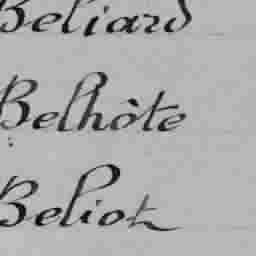 Beliard
Belhôte
Beliot